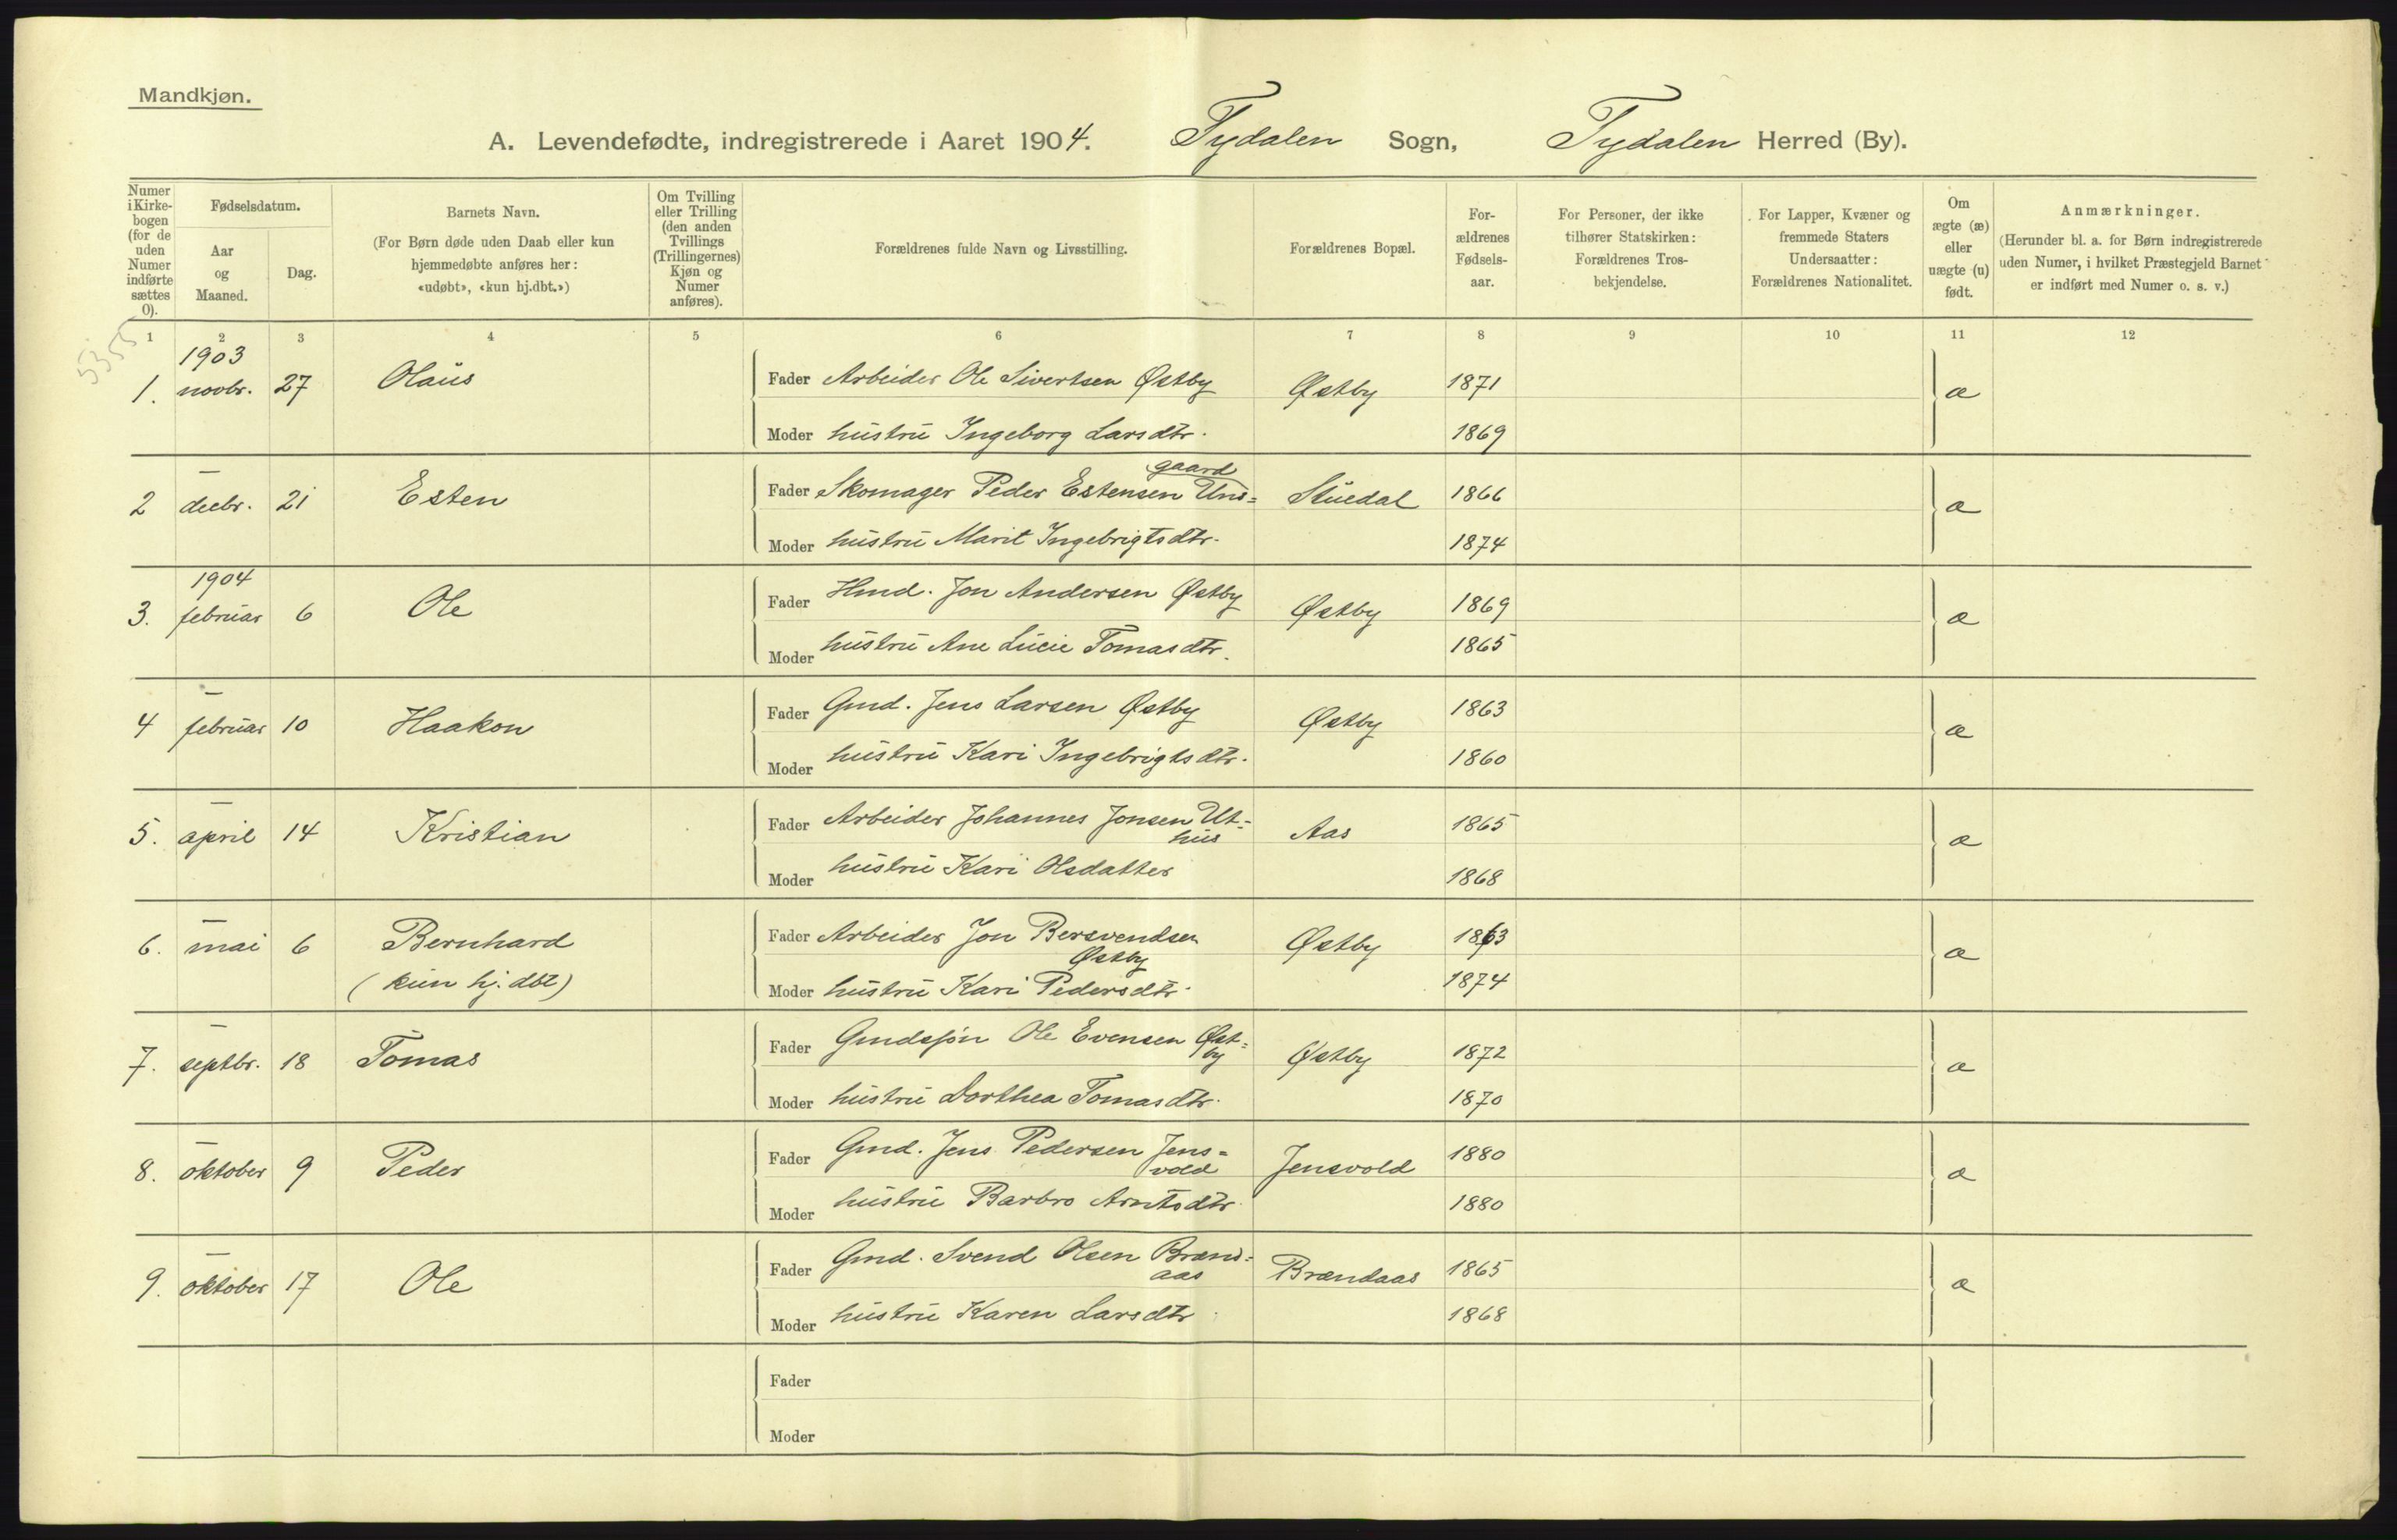 Mandkjøn.
A. Levendefødte, indregistrerede i Aaret 1904. Tydalen Sogn, Tydalen Herred (By).
Numer i Kirke-bogen (for de uden Numer indførte sættes 0).
Fødselsdatum.
Aar og Maaned.
Dag.
Barnets Navn.
(For Børn døde uden Daab eller kun hjemmedøbte anføres her: «udøbt», «kun hj.dbt.»)
Om Tvilling eller Trilling (den anden Tvillings (Trillingernes) Kjøn og Numer anføres).
Forældrenes fulde Navn og Livsstilling.
Forældrenes Bopæl.
For-ældrenes Fødsels-aar.
For Personer, der ikke tilhører Statskirken: Forældrenes Tros-bekjendelse.
For Lapper, Kvæner og fremmede Staters Undersaatter: Forældrenes Nationalitet.
Om ægte (æ) eller uægte (u) født.
Anmærkninger.
(Herunder bl. a. for Børn indregistrerede uden Numer, i hvilket Præstegjeld Barnet er indført med Numer o. s. v.)
1 2 3 4 5 6 7 8 9 10 11 12
5355
1903
1. novbr. 27 Olaus Fader Arbeider Ole Sivertsen Østby Østby 1871 æ
Moder hustru Ingeborg Larsdtr. 1869
—
gaard
2 decbr. 21 Esten Fader Skomager Peder Estensen Uns= Stuedal 1866 æ
Moder hustru Marit Ingebrigtsdtr. 1874
1904
3. februar 6 Ole Fader Hmd. Jon Andersen Østby Østby 1869 æ
Moder hustru Ane Lucie Tomasdtr. 1865
—
4 februar 10 Haakon Fader Gmd. Jens Larsen Østby Østby 1863 æ
Moder hustru Kari Ingebrigtsdtr. 1860
—
5. april 14 Kristian Fader Arbeider Johannes Jonsen Ut= Aas 1865 æ
hus
Moder hustru Kari Olsdatter 1868
—
6. mai 6 Bernhard Fader Arbeider Jon Bersvendsen Østby 1863 æ
Østby
(kun hj. dbt) Moder hustru Kari Pedersdtr. 1874
—
7. septbr. 18 Tomas Fader Gmdssøn Ole Evensen Øst= Østby 1872 æ
by
Moder hustru Dorthea Tomasdtr. 1870
—
8. oktober 9 Peder Fader Gmd. Jens Pedersen Jens= Jensvold 1880 æ
vold
Moder hustru Barbro Arntsdtr. 1880
—
9. oktober 17 Ole Fader Gmd. Svend Olsen Brænd= Brændaas 1865 æ
aas
Moder hustru Karen Larsdtr 1868
Fader
Moder